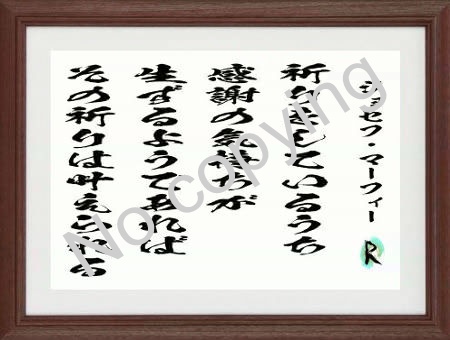 ジョセフ・マーフィー
祈りをしているうち
感謝の気持ちが
生ずるようであれば
その祈りは叶えられる
R
No copying